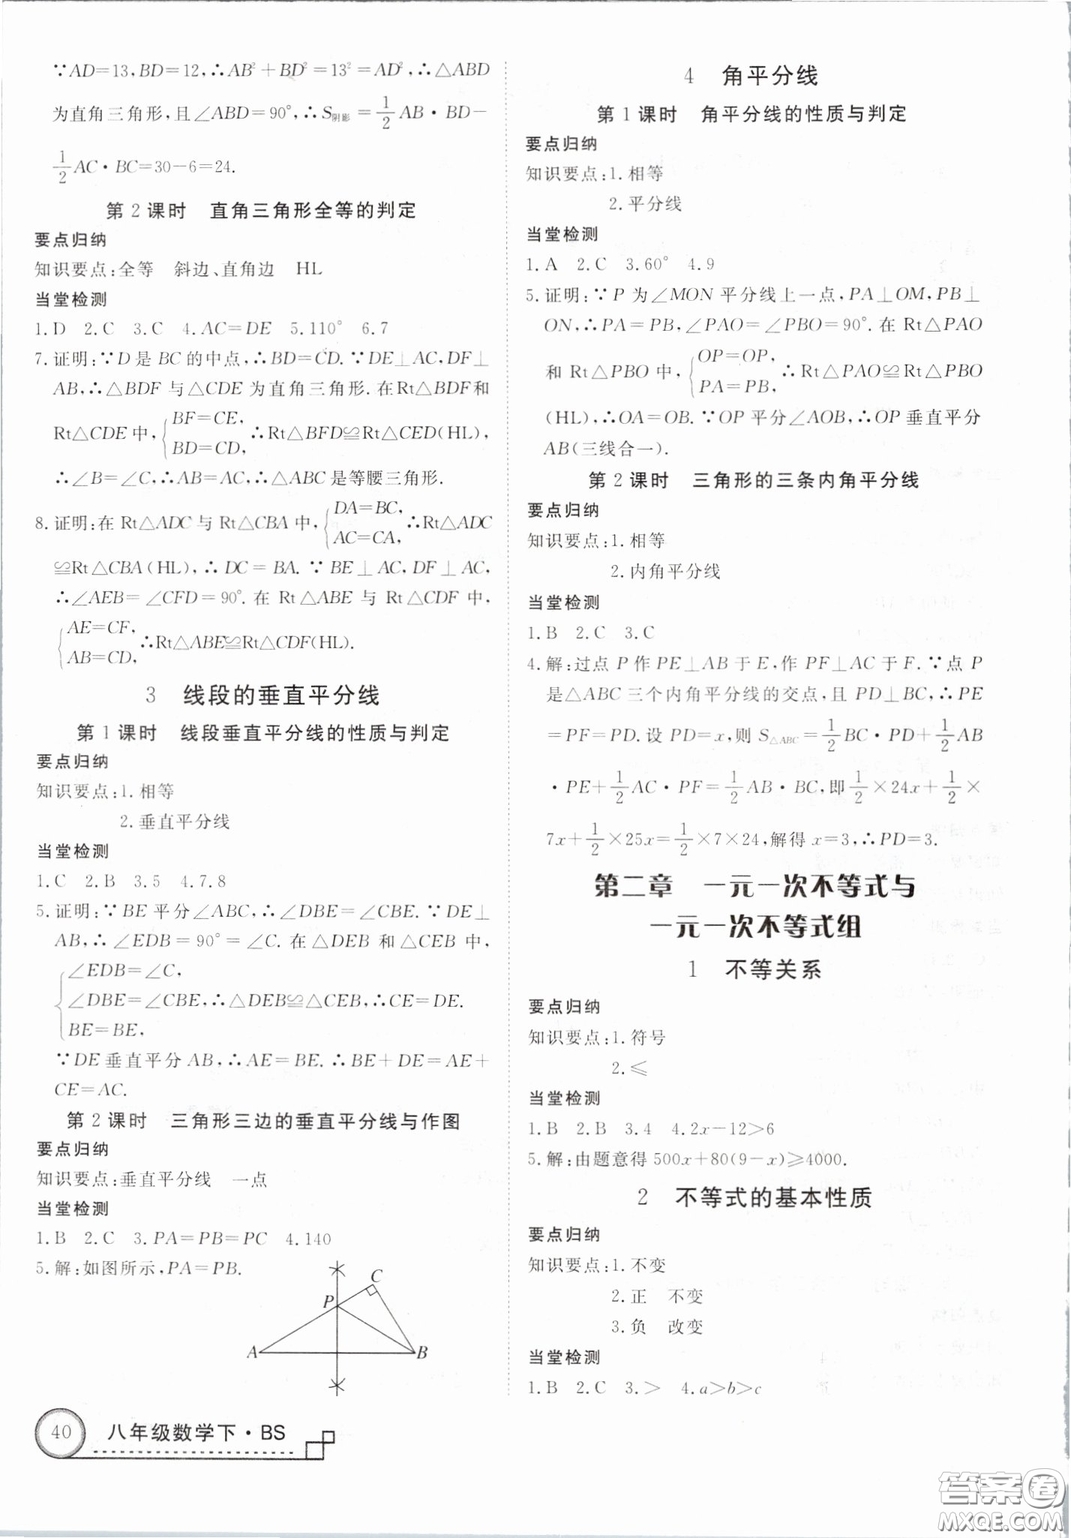 ∵AD=13,BD=12,∴AB²+BD²=13²=AD²,∴△ABD
为直角三角形,且∠ABD=90°,∴S阴影=1/2AB·BD-
1/2AC·BC=30-6=24.
第2课时 直角三角形全等的判定
要点归纳
知识要点:全等 斜边、直角边 HL
当堂检测
1.D 2.C 3.C 4.AC=DE 5.110° 6.7
7.证明:∵D是BC的中点,∴BD=CD.∵DE⊥AC,DF⊥
AB,∴△BDF与△CDE为直角三角形.在Rt△BDF和
Rt△CDE中,{BF=CE, BD=CD,∴Rt△BFD≌Rt△CED(HL),
∴∠B=∠C,∴AB=AC,∴△ABC是等腰三角形.
8.证明:在Rt△ADC与Rt△CBA中,{DA=BC, AC=CA,∴Rt△ADC
≌Rt△CBA(HL),∴DC=BA.∵BE⊥AC,DF⊥AC,
∴∠AEB=∠CFD=90°.在Rt△ABE与Rt△CDF中,
{AE=CF, AB=CD,∴Rt△ABE≌Rt△CDF(HL).
3 线段的垂直平分线
第1课时 线段垂直平分线的性质与判定
要点归纳
知识要点:1.相等
2.垂直平分线
当堂检测
1.C 2.B 3.5 4.7.8
5.证明:∵BE平分∠ABC,∴∠DBE=∠CBE.∵DE⊥
AB,∴∠EDB=90°=∠C.在△DEB和△CEB中,
{∠EDB=∠C,
∠DBE=∠CBE,∴△DEB≌△CEB,∴CE=DE.
BE=BE,
∵DE垂直平分AB,∴AE=BE.∴BE+DE=AE+
CE=AC.
第2课时 三角形三边的垂直平分线与作图
要点归纳
知识要点:垂直平分线 一点
当堂检测
1.B 2.C 3.PA=PB=PC 4.140
5.解:如图所示,PA=PB.
C
P
A
B
40 八年级数学下·BS
4 角平分线
第1课时 角平分线的性质与判定
要点归纳
知识要点:1.相等
2.平分线
当堂检测
1.A 2.C 3.60° 4.9
5.证明:∵P为∠MON平分线上一点,PA⊥OM,PB⊥
ON,∴PA=PB,∠PAO=∠PBO=90°.在Rt△PAO
和Rt△PBO中,{OP=OP, PA=PB,∴Rt△PAO≌Rt△PBO
(HL),∴OA=OB.∵OP平分∠AOB,∴OP垂直平分
AB(三线合一).
第2课时 三角形的三条内角平分线
要点归纳
知识要点:1.相等
2.内角平分线
当堂检测
1.B 2.C 3.C
4.解:过点P作PE⊥AB于E,作PF⊥AC于F.∵点P
是△ABC三个内角平分线的交点,且PD⊥BC,∴PE
=PF=PD.设PD=x,则S△ABC=1/2BC·PD+1/2AB
·PE+1/2AC·PF=1/2AB·BC,即1/2×24x+1/2×
7x+1/2×25x=1/2×7×24,解得x=3,∴PD=3.
第二章 一元一次不等式与
一元一次不等式组
1 不等关系
要点归纳
知识要点:1.符号
2.≤
当堂检测
1.B 2.B 3.4 4.2x-12>6
5.解:由题意得500x+80(9-x)≥4000.
2 不等式的基本性质
要点归纳
知识要点:1.不变
2.正 不变
3.负 改变
当堂检测
1.B 2.C 3.> 4.a>b>c
答案圈
MXQE.COM